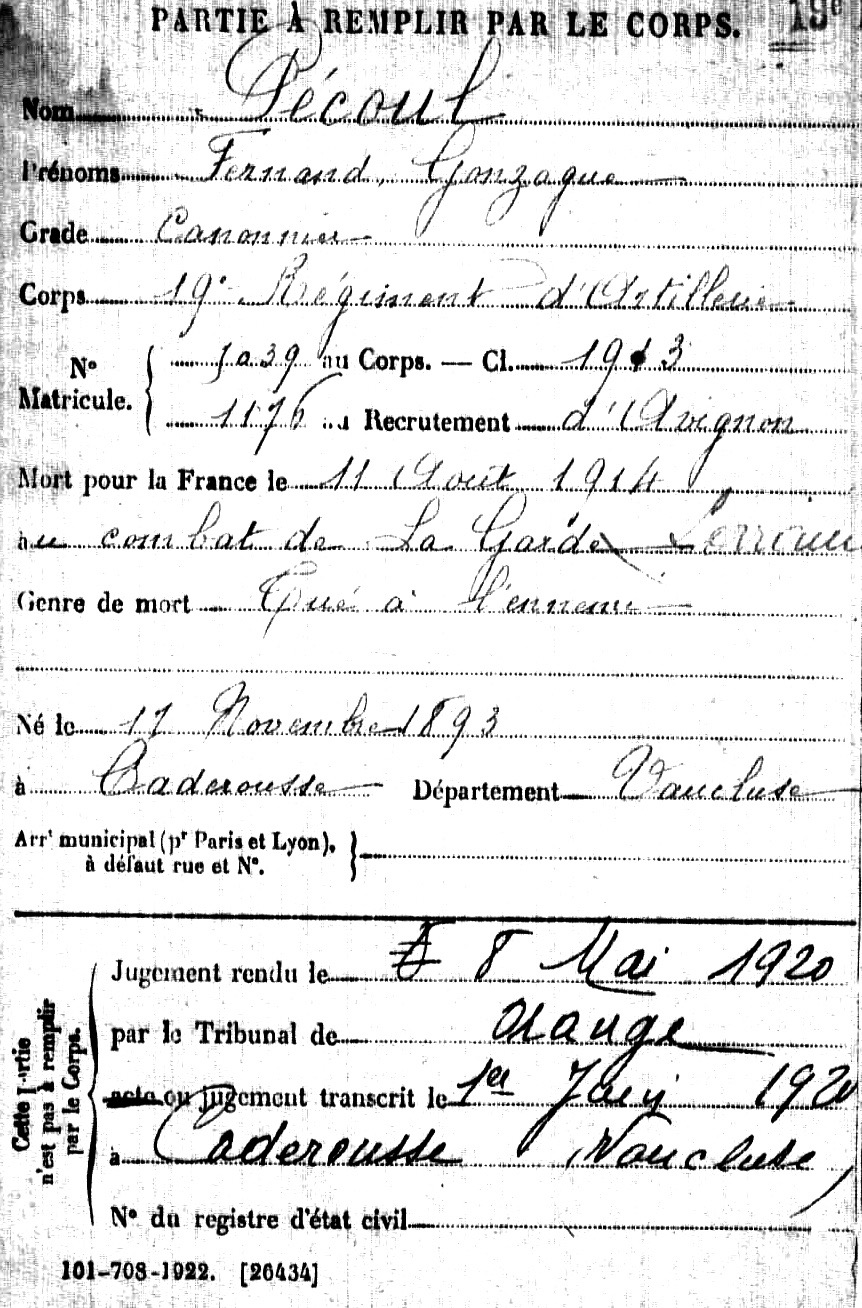 PARTIE À REMPLIR PAR LE CORPS. 19e
Nom Pécoul
Prénoms Fernand, Gonzague
Grade Canonnier
Corps 19e Régiment d'Artillerie
No Matricule. 1039 au Corps. — Cl. 1913
1176 au Recrutement d'Avignon
Mort pour la France le 11 Août 1914
au combat de La Garde Lorraine
Genre de mort Tué à l'ennemi
Né le 17 Novembre 1893
à Caderousse Département Vaucluse
Arrt municipal (pr Paris et Lyon),
à défaut rue et No.
Cette partie
n'est pas à remplir
par le Corps.
Jugement rendu le 8 Mai 1920
par le Tribunal de Orange
acte ou jugement transcrit le 1er Juin 1920
à Caderousse (Vaucluse)
No du registre d'état civil
101-708-1922. [26434]